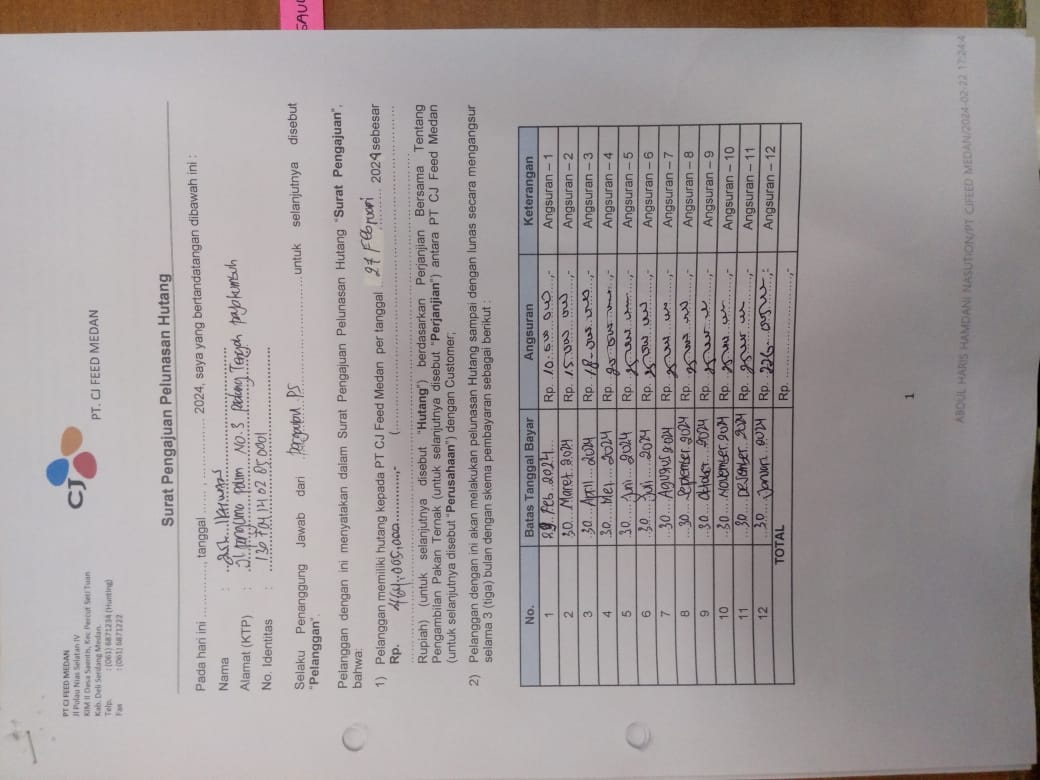 SAUD
PT CJ FEED MEDAN
Jl Pulau Nias Selatan IV
KIM II Desa Saentis, Kec Percut Seti Tuan
Kab. Deli Serdang Medan.
Telp. : (061) 6871234 (Hunting)
Fax : (061) 6871222
CJ
PT. CJ FEED MEDAN
Surat Pengajuan Pelunasan Hutang
Pada hari ini ..............., tanggal ............... 2024, saya yang bertandatangan dibawah ini :
Nama :
Alamat (KTP) : NO. 3 Padang Tengah Payakumbuh
No. Identitas :
Selaku Penanggung Jawab dari PS untuk selanjutnya disebut
"Pelanggan".
Pelanggan dengan ini menyatakan dalam Surat Pengajuan Pelunasan Hutang "Surat Pengajuan",
bahwa:
1) Pelanggan memiliki hutang kepada PT CJ Feed Medan per tanggal 27 Februari 2024 sebesar
Rp. 464.005.000,- (
Rupiah) (untuk selanjutnya disebut "Hutang") berdasarkan Perjanjian Bersama Tentang
Pengambilan Pakan Ternak (untuk selanjutnya disebut "Perjanjian") antara PT CJ Feed Medan
(untuk selanjutnya disebut "Perusahaan") dengan Customer;
2) Pelanggan dengan ini akan melakukan pelunasan Hutang sampai dengan lunas secara mengangsur
selama 3 (tiga) bulan dengan skema pembayaran sebagai berikut :
No. Batas Tanggal Bayar Angsuran Keterangan
1 29 Feb 2024 Rp. 10.000.000,- Angsuran – 1
2 30 Maret 2024 Rp. 15.000.000,- Angsuran – 2
3 30 April 2024 Rp. 18.000.000,- Angsuran – 3
4 30 Mei 2024 Rp. ,- Angsuran – 4
5 30 Juni 2024 Rp. 25.000.000,- Angsuran – 5
6 30 Juli 2024 Rp. 25.000.000,- Angsuran – 6
7 30 Agustus 2024 Rp. 25.000.000,- Angsuran – 7
8 30 September 2024 Rp. 25.000.000,- Angsuran – 8
9 30 Oktober 2024 Rp. 25.000.000,- Angsuran – 9
10 30 November 2024 Rp. 25.000.000,- Angsuran – 10
11 30 Desember 2024 Rp. 25.000.000,- Angsuran – 11
12 30 Januari 2024 Rp. ,- Angsuran – 12
TOTAL Rp. ...............,-
1
ABDUL HARIS HAMDANI NASUTION/PT CJFEED MEDAN/2024-02-22 17:24:4